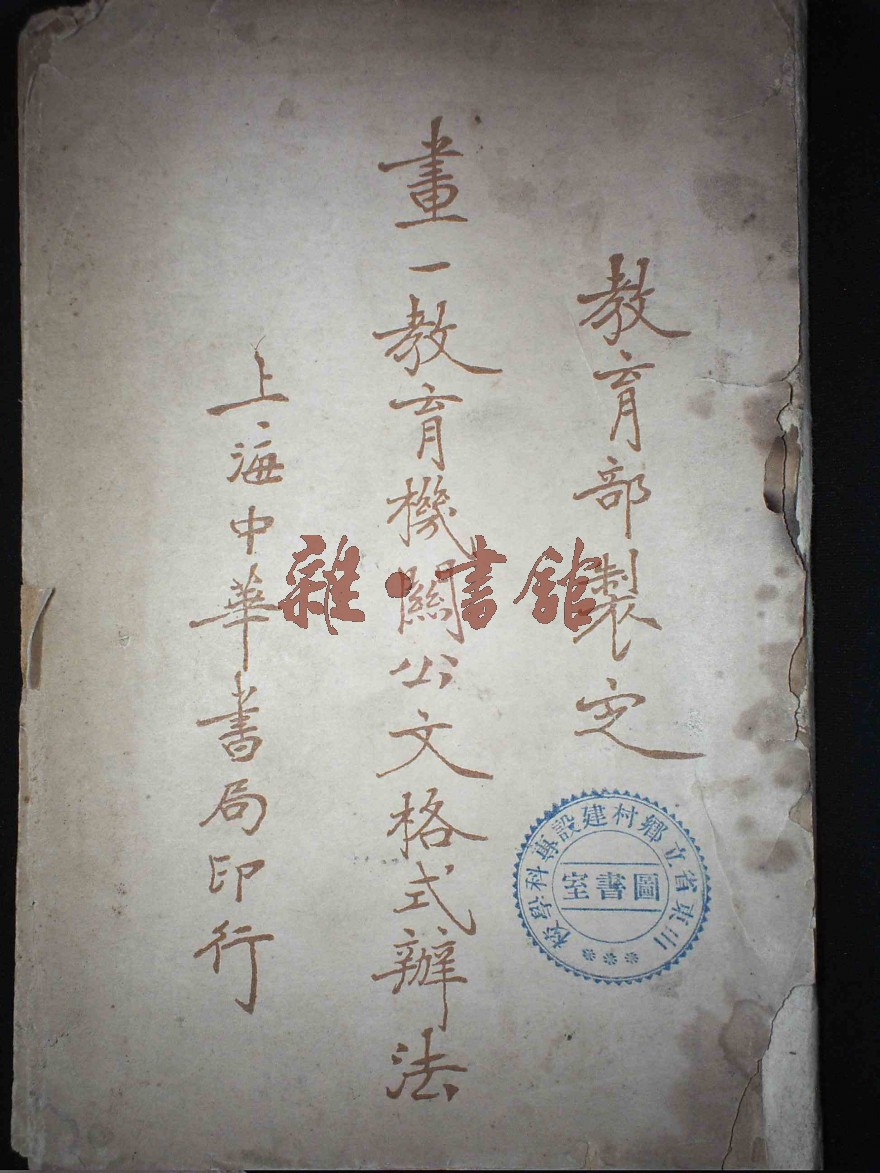 教育部製定
畫一教育機關公文格式辦法
上海中華書局印行
雜·書館
山東省立鄉村建設專科學校
圖書室